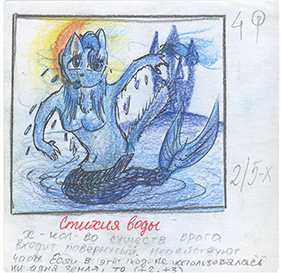 4
2/5-х
Стихия воды
х - кол-во существ врага
входит повернутый, не действуют
чары. Если в этот ходе не использовалась
ни одна земля, то (+2, +3)